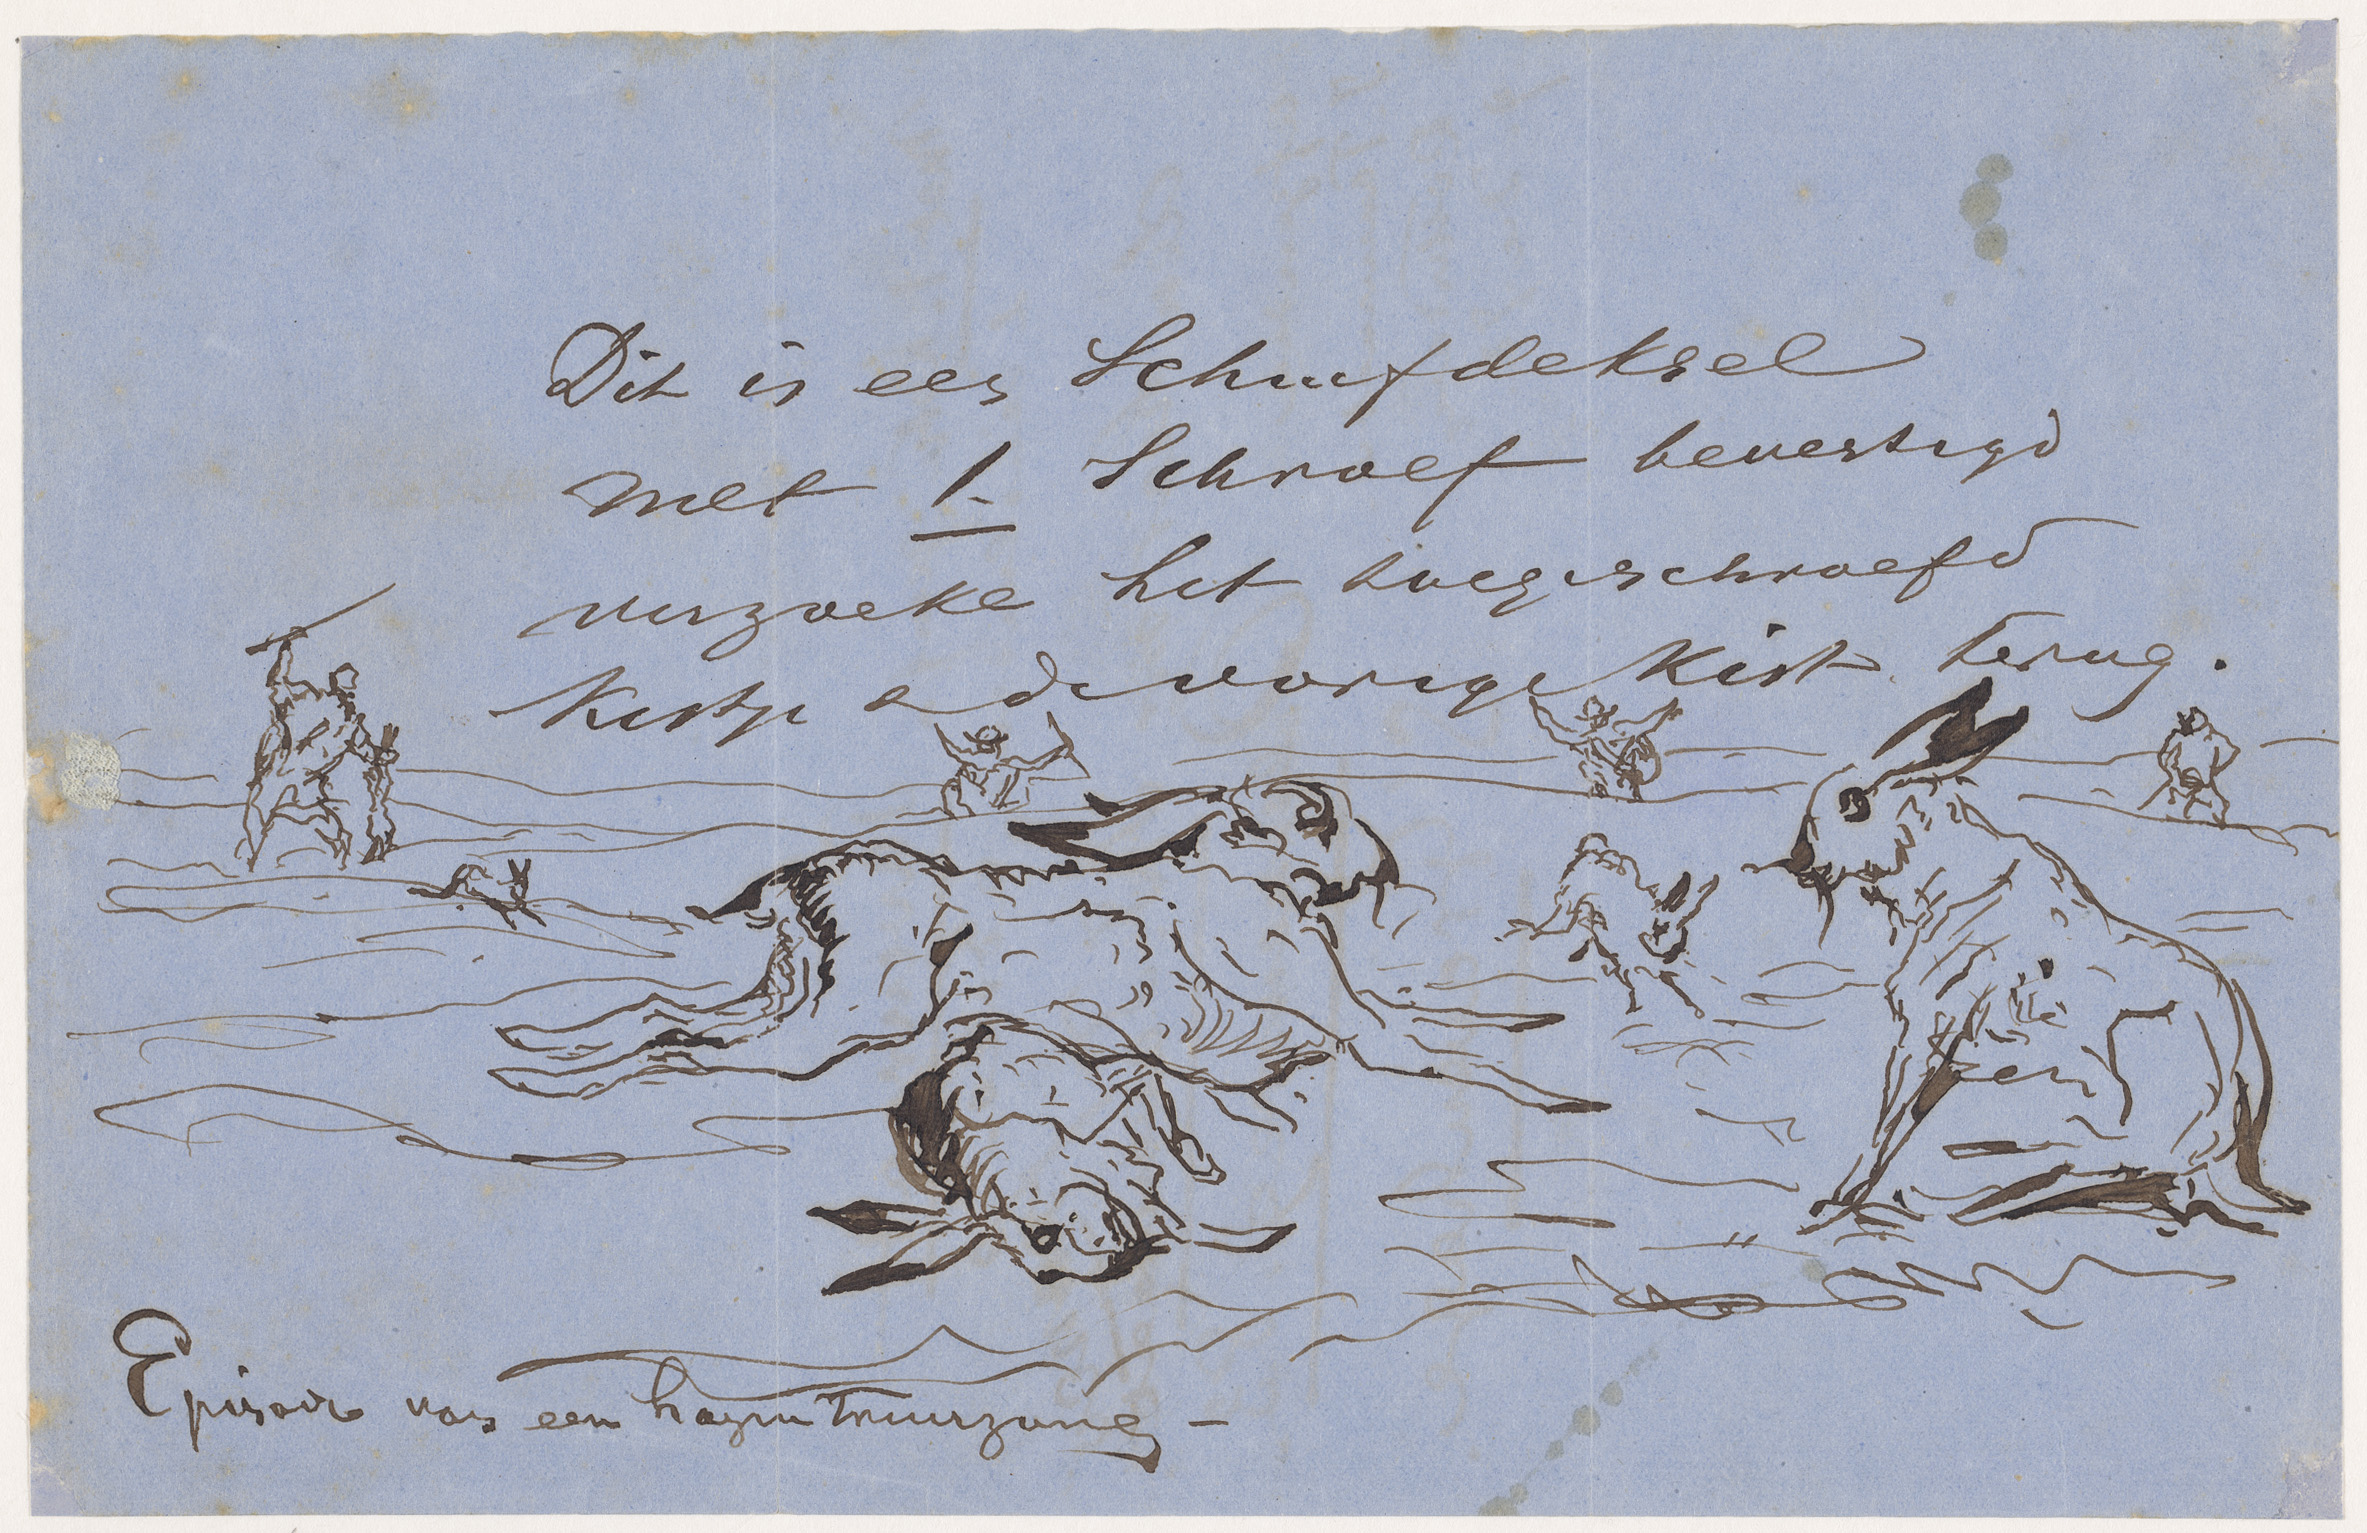 Dit is een Schuifdeksel
met 1. Schroef bevestigd
verzoeke het toegeschroefd
Kistje a de vorige Kist terug.
Episode van een hazen Treurzang –